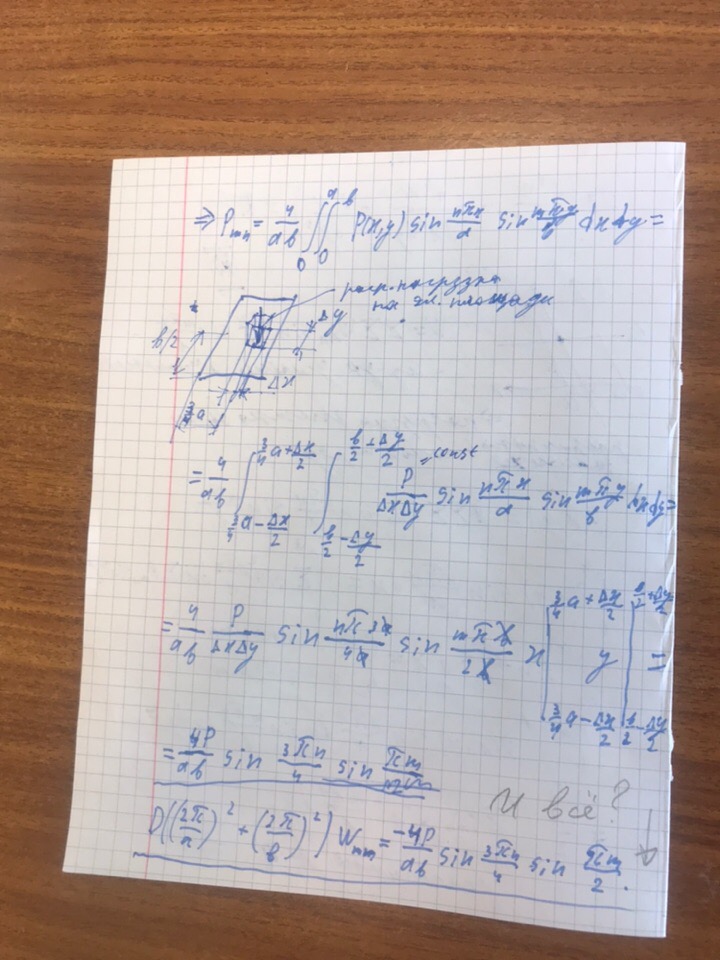 ⇒ P_mn = 4/ab ∫₀^a ∫₀^b P(x,y) sin nπx/a sin mπy/b dx dy =
распр. нагрузка
на эл. площади
Δy
b/2
Δx
3/4 a
= 4/ab ∫_{3/4 a - Δx/2}^{3/4 a + Δx/2} ∫_{b/2 - Δy/2}^{b/2 + Δy/2} P/ΔxΔy = const sin nπx/a sin mπy/b dx dy =
= 4/ab P/ΔxΔy sin nπ3a/4a sin mπb/2b x |_{3/4 a - Δx/2}^{3/4 a + Δx/2} y |_{b/2 - Δy/2}^{b/2 + Δy/2} =
= 4P/ab sin 3πn/4 sin πm/2
И всё?
D((2π/a)² + (2π/b)²) W_mn = -4P/ab sin 3πn/4 sin πm/2.